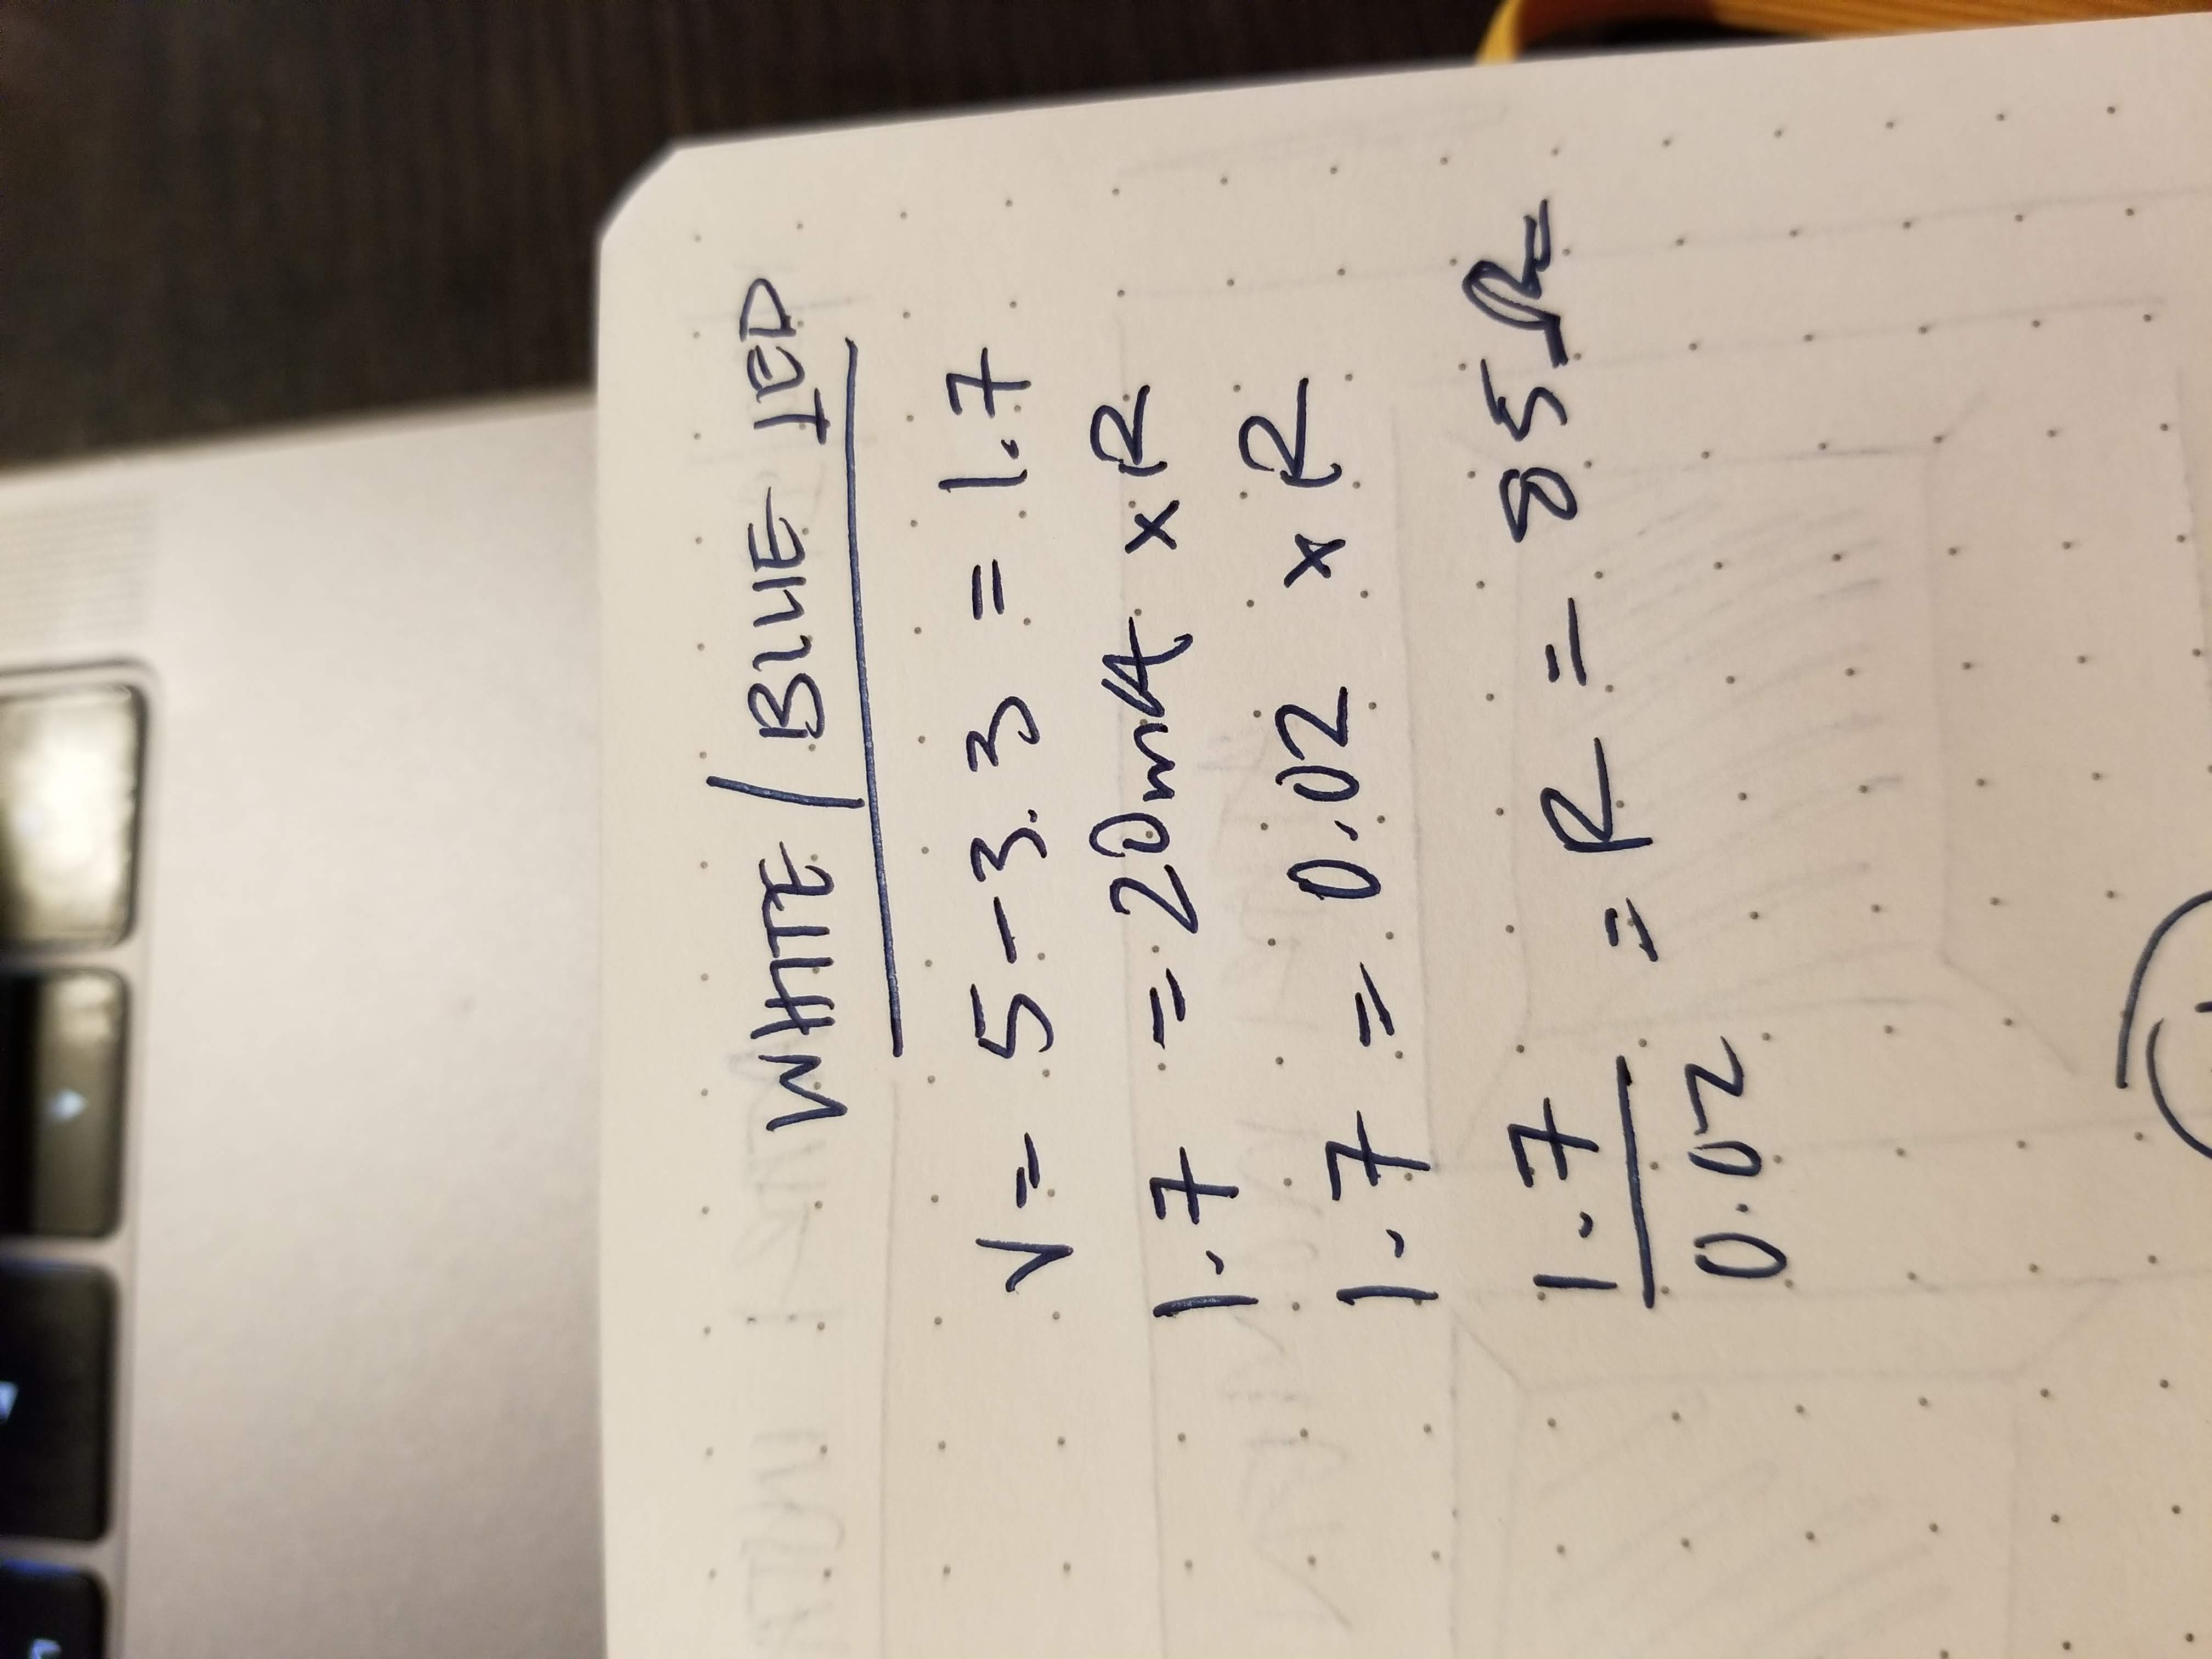 WHITE / BLUE LED
V = 5 - 3.3 = 1.7
1.7 = 20mA x R
1.7 = 0.02 x R
1.7
= R = 85Ω
0.02